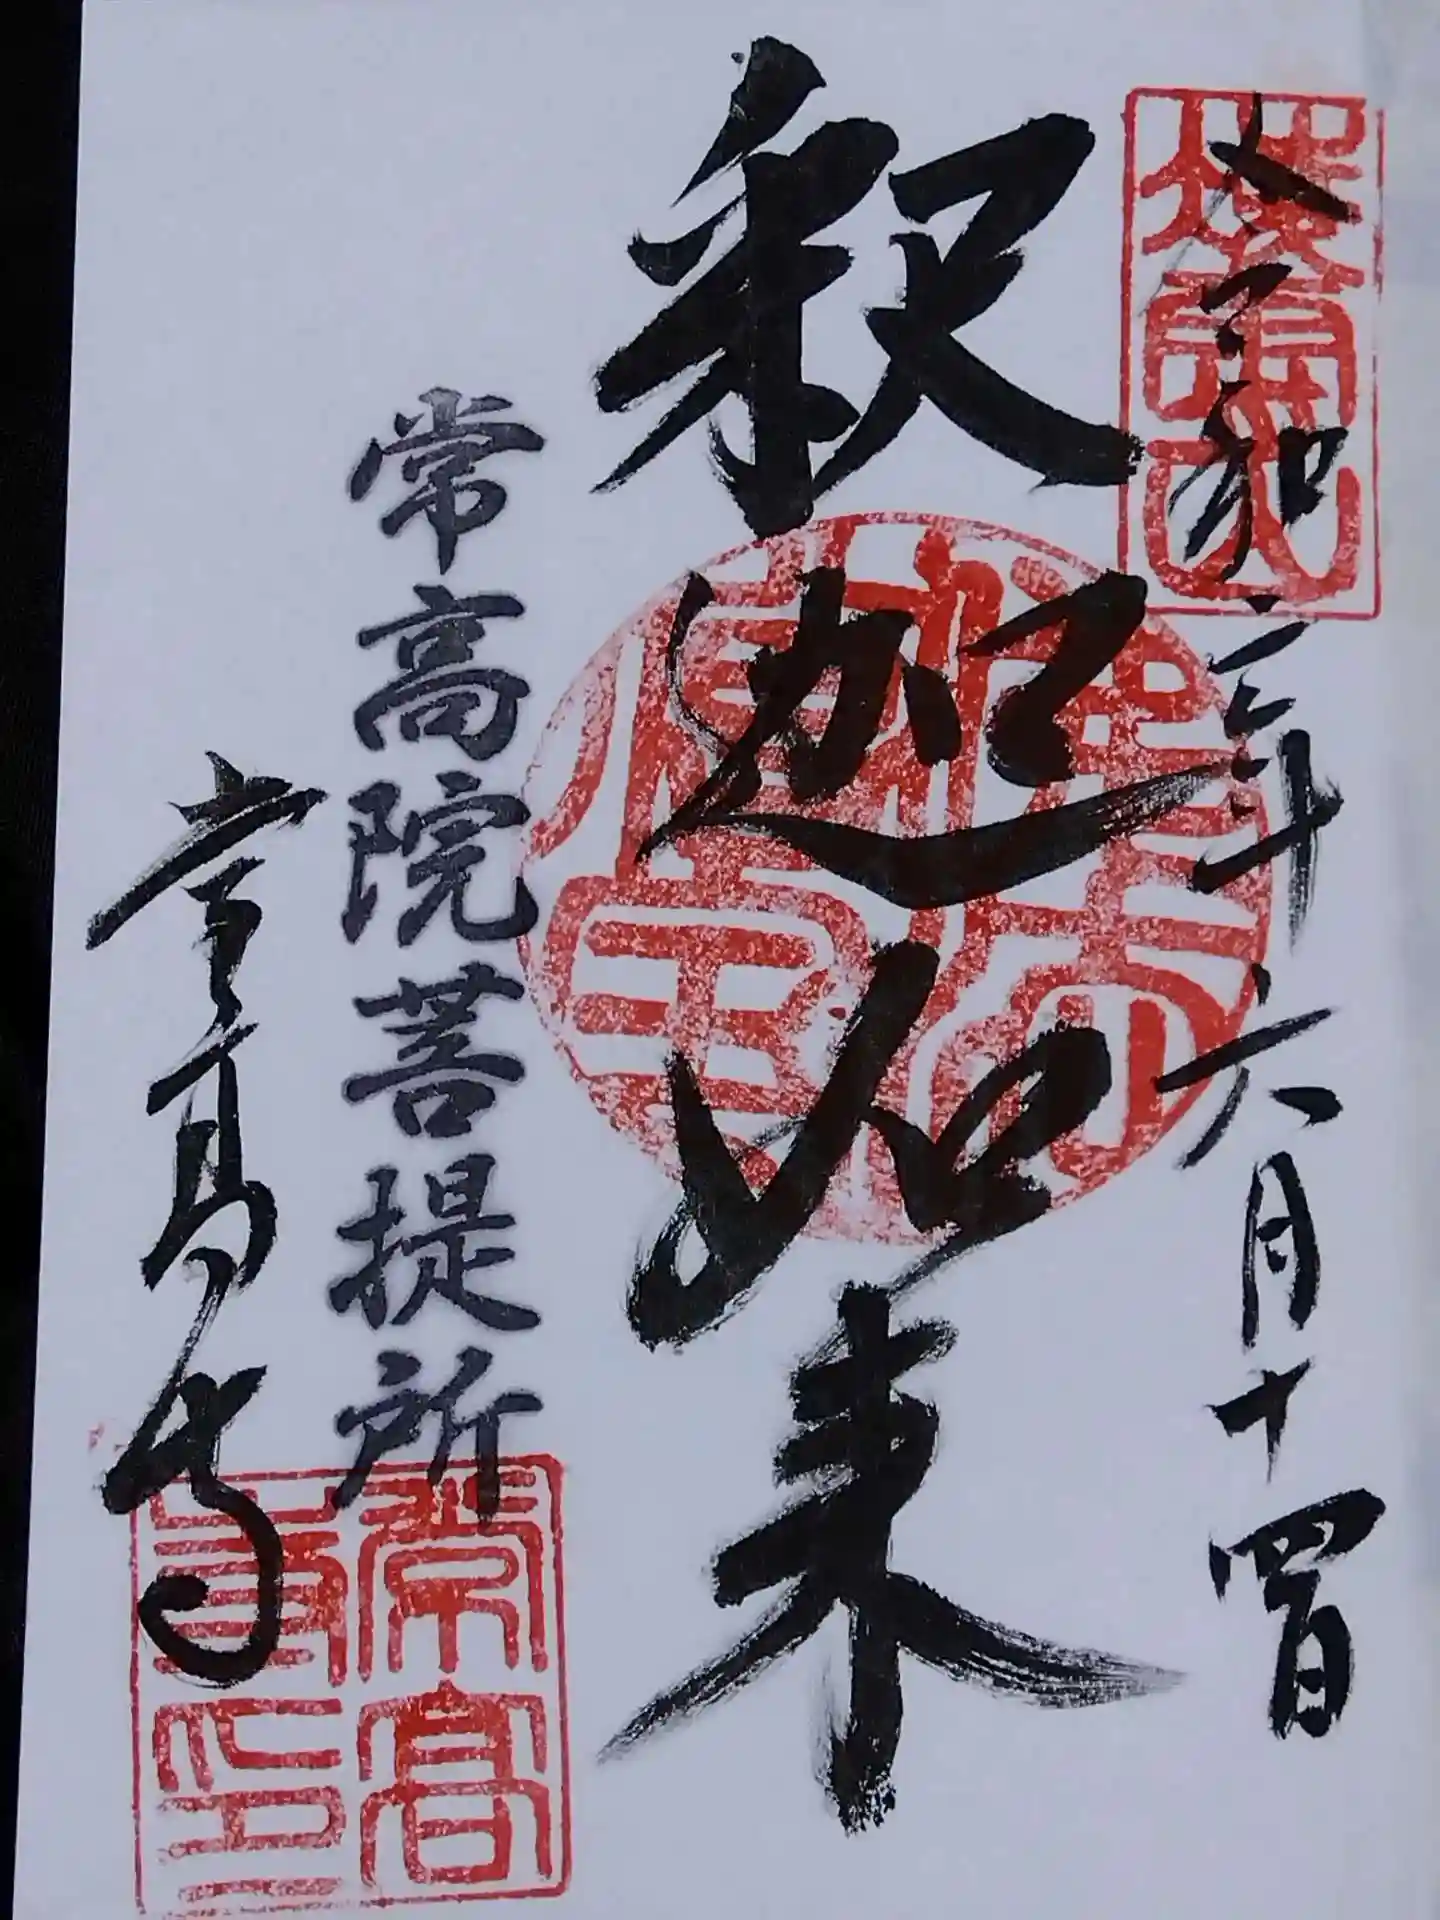 令和三年六月十四日
釈迦如来
常高院菩提所
常高寺
佛法僧寶
常高寺印